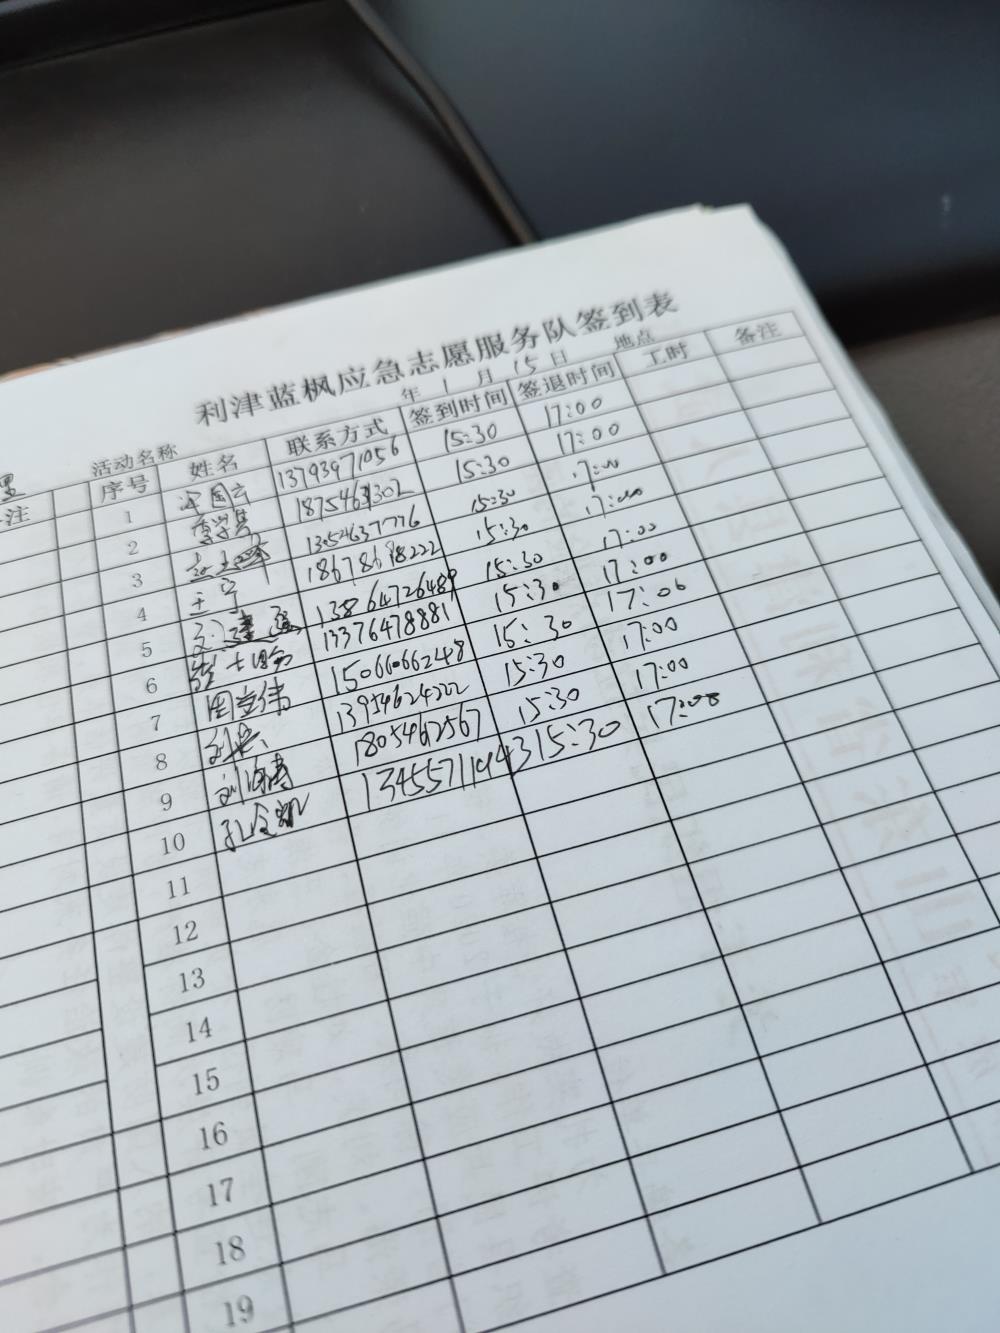 利津蓝枫应急志愿服务队签到表
活动名称 年 1 月 15 日 地点
序号 姓名 联系方式 签到时间 签退时间 工时 备注
1 13793971056 15:30 17:00
2 15:30 17:00
3 13054637776 15:30 17:00
4 王宁 18678698222 15:30 17:00
5 13864726489 15:30 17:00
6 13376478881 15:30 17:00
7 周立伟 15066066248 15:30 17:00
8 13954624222 15:30 17:00
9 1805462567 15:30 17:00
10 13455711943 15:30 17:00
11
12
13
14
15
16
17
18
19
注